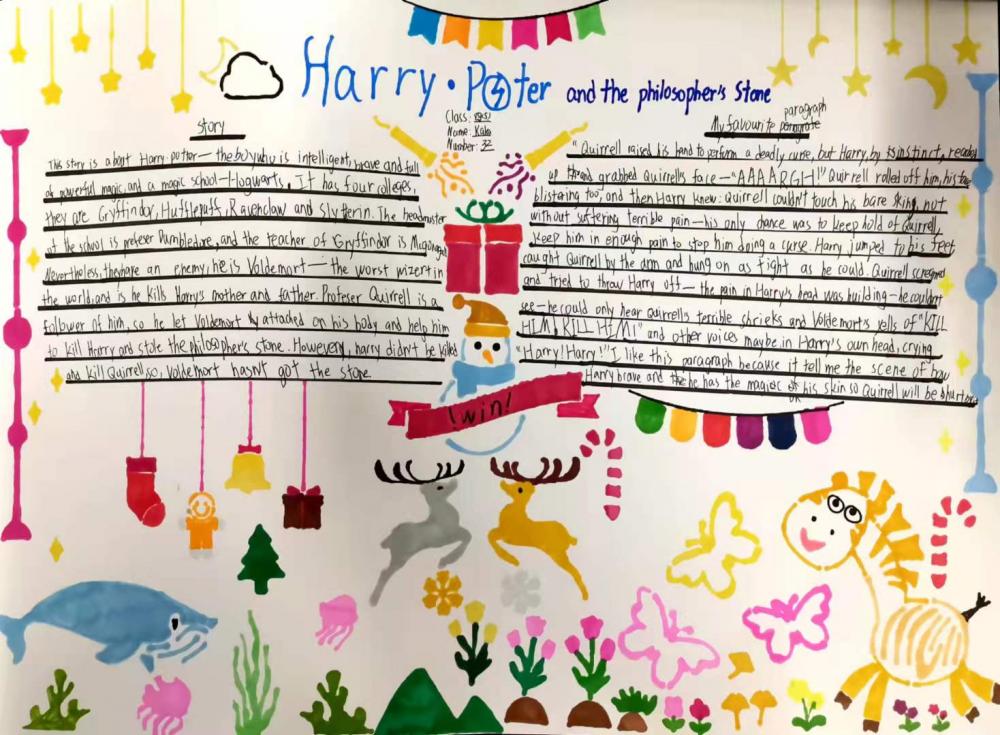 Harry·Poter and the philosopher's Stone
Class:
Name: Kala
Number: 32
story
This story is a about Harry·potter — the boy who is intelligent, brave and full
of powerful magic, and a magic school—Hogwarts. It has four colleges,
they are Gryffindor, Hufflepuff, Ravenclaw and Slytterin. The headmaster
of the school is profeser Dumbledore, and the teacher of Gryffindor is
Nevertheless, they have an enemy, he is Voldemort — the worst wizert in
the world, and is he kills Harry's mother and father. Profeser Quirrell is a
follower of him, so he let Voldemort attatched on his body and help him
to kill Harry and stole the philosopher's stone. However, harry didn't be killed
and kill Quirrell, so, Voldemort hasn't got the stone.
My favourite paragraph
"Quirrell raised his hand to perform a deadly curse, but Harry, by instinct, reached
up and grabbed Quirrell's face — "AAAARGH!" Quirrell rolled off him, his face
blistering too, and then Harry knew: Quirrell couldn't touch his bare skin, not
without suffering terrible pain — his only chance was to keep hold of Quirrell,
keep him in enough pain to stop him doing a curse. Harry jumped to his feet
caught Quirrell by the arm and hung on as tight as he could. Quirrell screamed
and tried to throw Harry off — the pain in Harry's head was building — he couldn't
see — he could only hear Quirrell's terrible shrieks and Voldemort's yells of "KILL
HIM! KILL HIM!" and other voices maybe in Harry's own head, crying
"Harry! Harry!" I like this paragraph because it tell me the scene of how
Harry brave and the he has the magic of his skin so Quirrell will be hurt
I win!